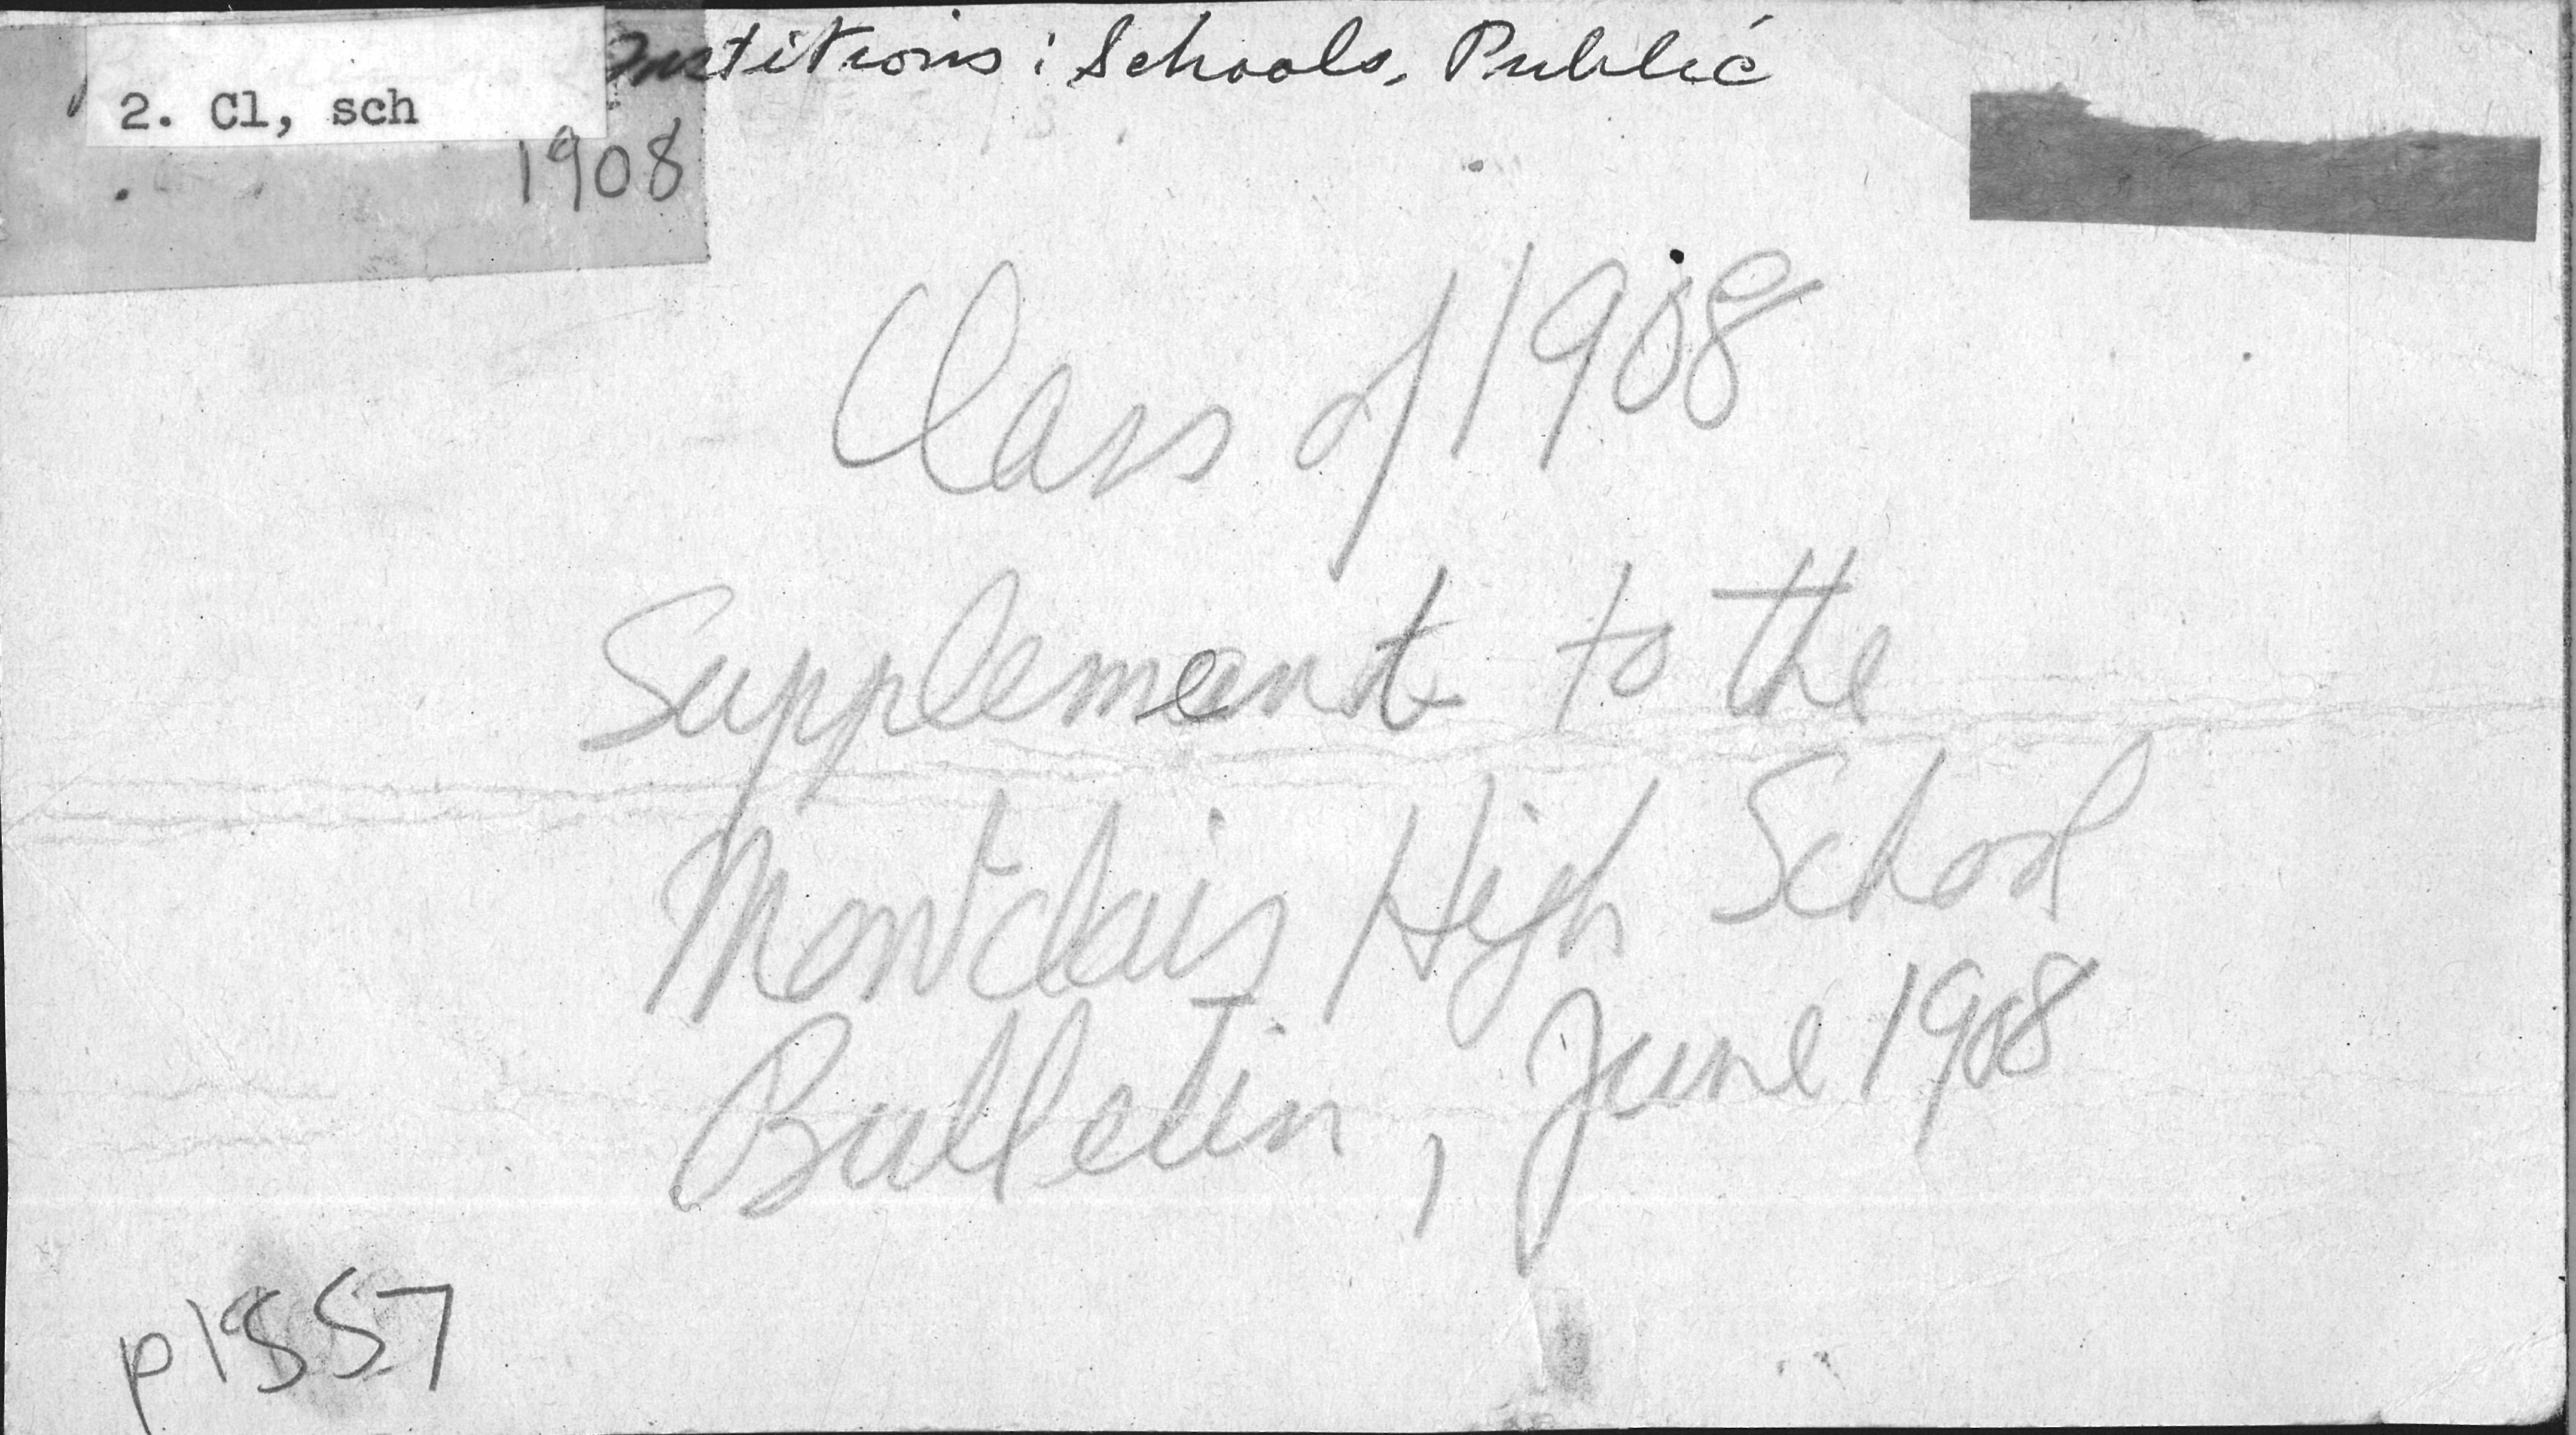 Institions: Schools, Public
2. Cl, sch
1908
Class of 1908
Supplement to the
Montclair High School
Bulletin, June 1908
p1557